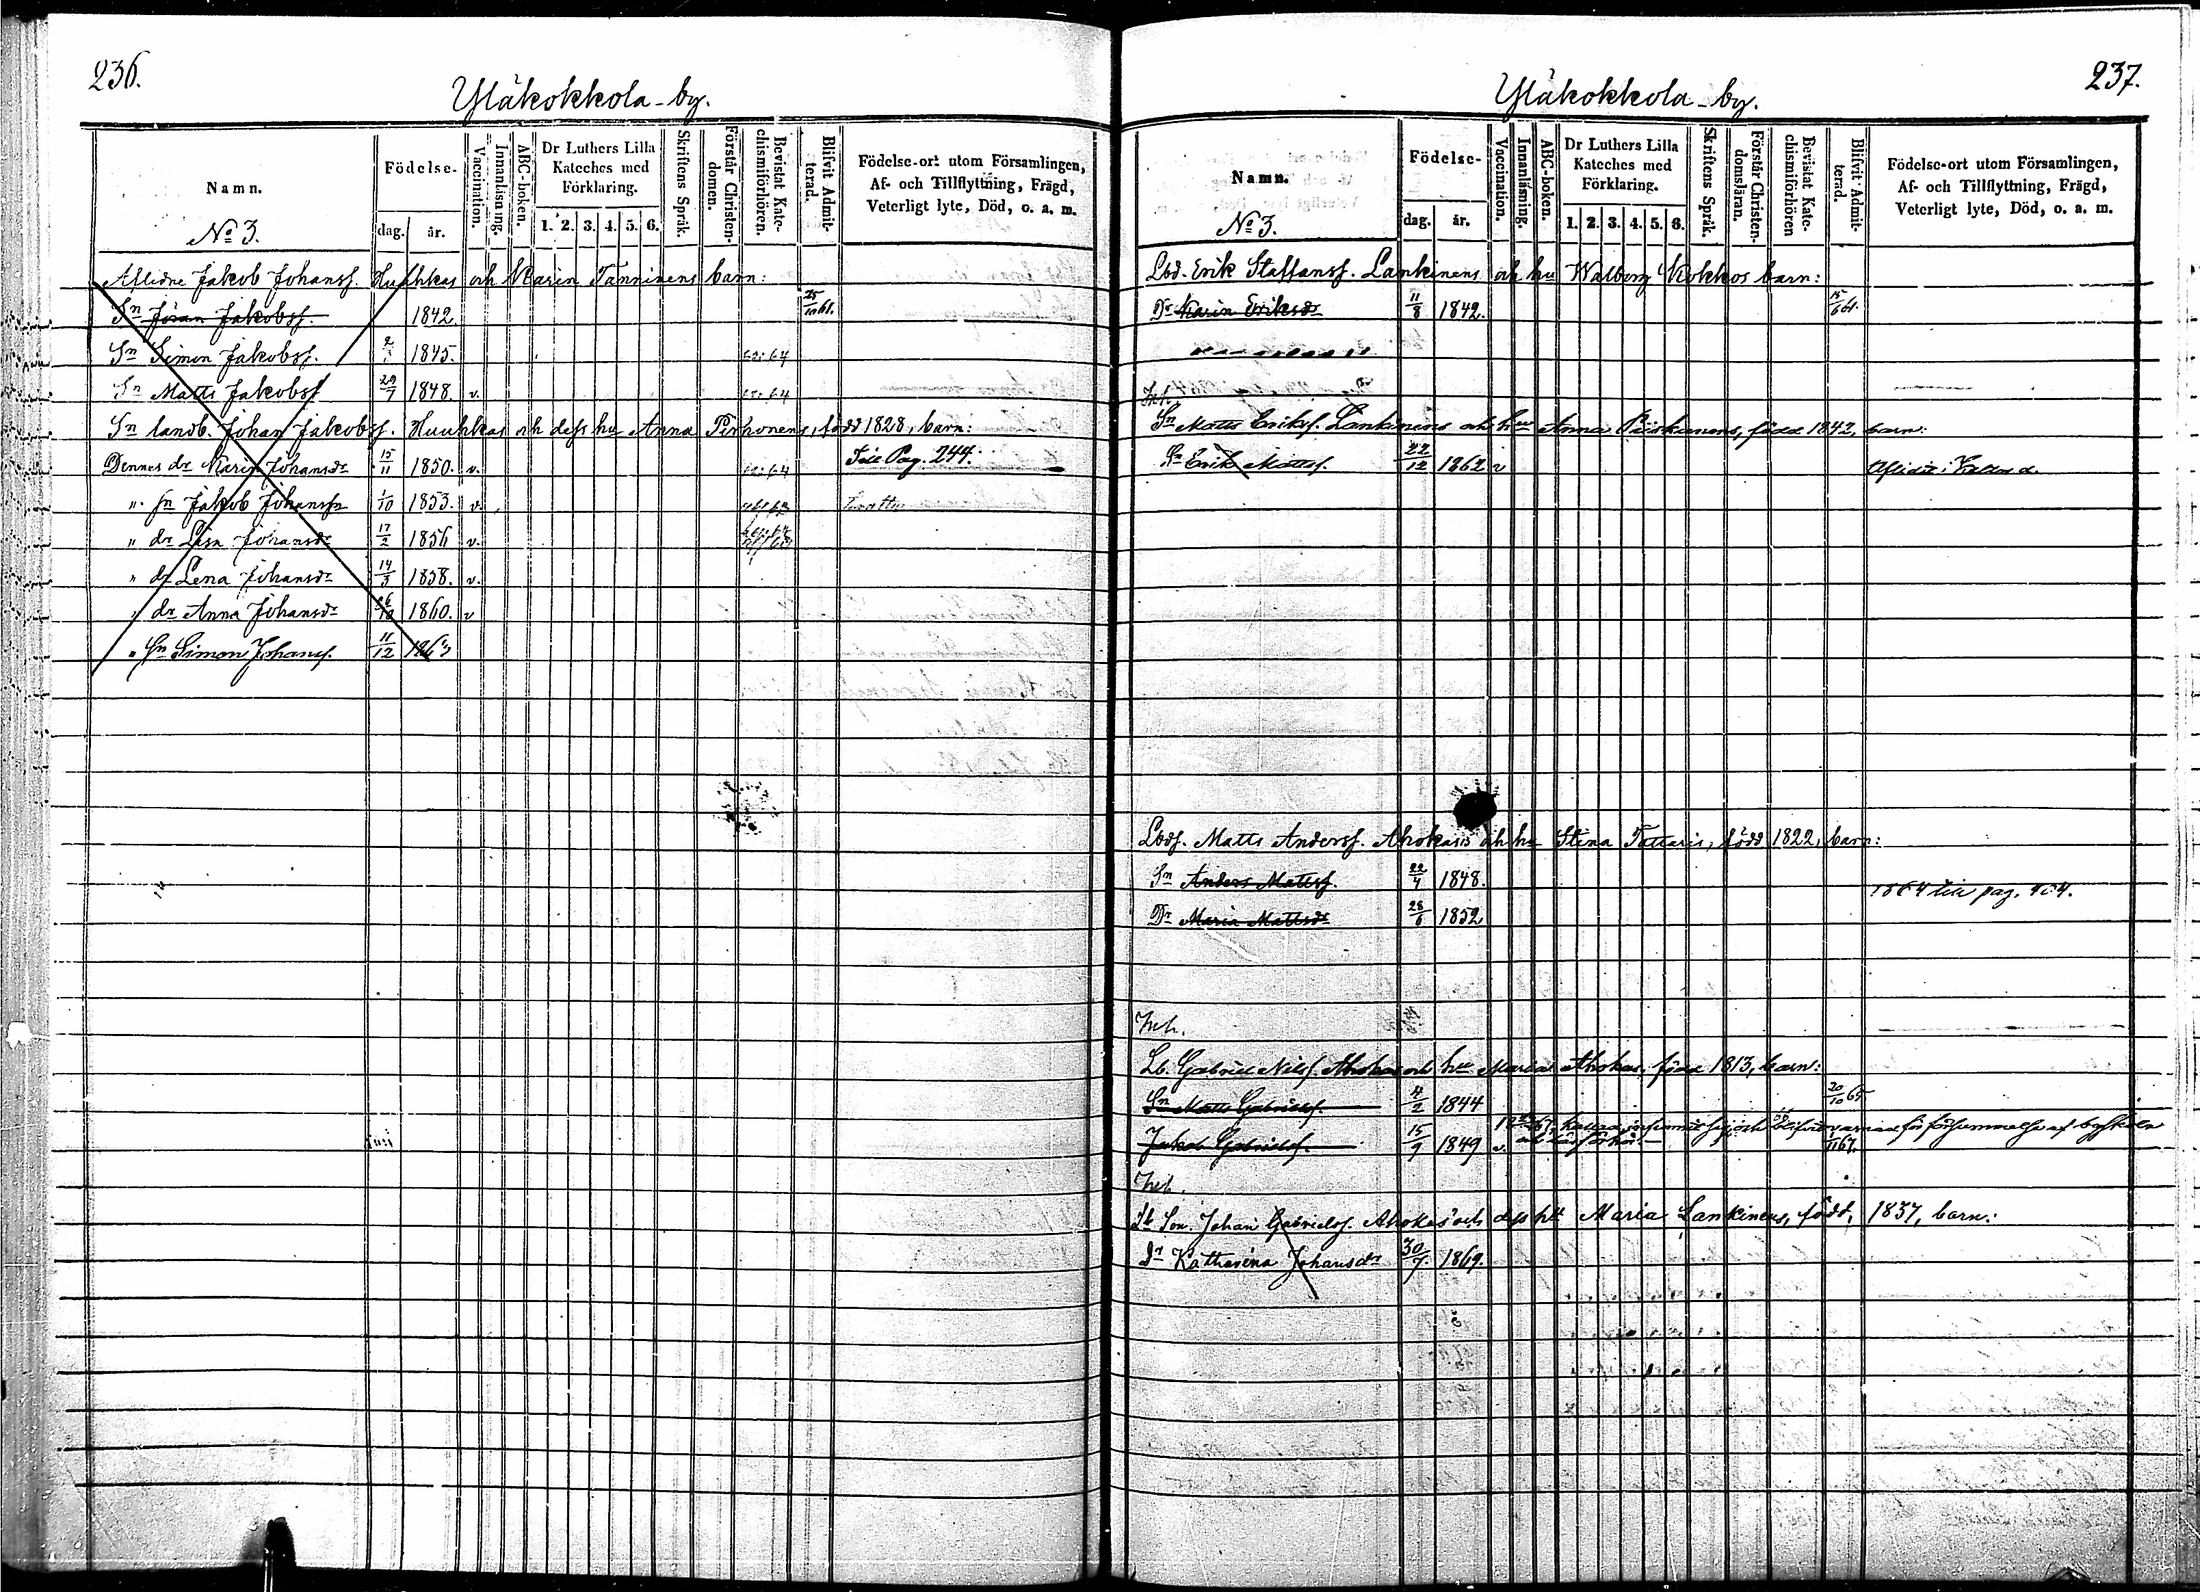 236.
Yläkokkola by.
Namn.
No 3.
Födelse-
dag.
år.
Vaccination.
Innanläsning.
ABC-boken.
Dr Luthers Lilla
Kateches med
Förklaring.
1. 2. 3. 4. 5. 6.
Skriftens Språk.
Förstår Christen-
domen.
Bevistat Kate-
chismiförhören.
Blifvit Admit-
terad.
Födelse-ort utom Församlingen,
Af- och Tillflyttning, Frägd,
Veterligt lyte, Död, o. a. m.
Aflidne Jakob Johanss. Huuhkas och Karin Tanninens barn:
Sn Jöran Jakobss. 1842. 25/10 61.
Sn Simon Jakobss. 1845. 64
Sn Matts Jakobss 29/7 1848. v. 64
Sn landb. Johan Jakobss. Huuhkas och dess hu Anna Pirhonens, född 1828, barn:
Dennes dr Karin Johansdr 15/11 1850. v. 64 Till Pag. 244.
" Sn Jakob Johanssn 1/10 1853. v.
" dr Lisa Johansdr 17/2 1856 v.
" dr Lena Johansdr 14/3 1858. v.
" dr Anna Johansdr 26/10 1860. v
" Sn Simon Johanss. 11/12 1863
237.
Yläkokkola by.
Namn.
No 3.
Födelse-
dag.
år.
Vaccination.
Innanläsning.
ABC-boken.
Dr Luthers Lilla
Kateches med
Förklaring.
1. 2. 3. 4. 5. 6.
Skriftens Språk.
Förstår Christen-
domsläran.
Bevistat Kate-
chismiförhören
Blifvit Admit-
terad.
Födelse-ort utom Församlingen,
Af- och Tillflyttning, Frägd,
Veterligt lyte, Död, o. a. m.
Lbd. Erik Staffanss. Lankinens och hu Walborg Kokkos barn:
Dr Karin Eriksdr 11/8 1842. 15/6 61.
Inh.
Sn Matts Erikss. Lankinens och hu Anna Piiskunens, född 1842, barn:
Sn Erik Mattss. 22/12 1862 v
Lbds. Matts Anderss. Ahokasis och hu Stina Tattaris, född 1822, barn:
Sn Anders Mattss. 22/4 1848. 1864 till pag. 404.
Dr Maria Mattsdr 28/6 1852
Inh.
Lb. Gabriel Nilss. Ahokas och hu Maria Ahokas, född 1813, barn:
Sn Matts Gabrielss. 4/2 1844 20/10 65
Jakob Gabrielss. 15/9 1849 v. 67.
Inh.
Lb Son. Johan Gabrielss. Ahokas och dess hu Maria Lankinens, född, 1837, barn:
Dr Katharina Johansdr 30/7. 1869.